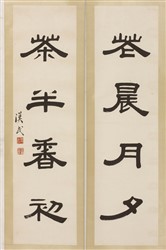 花晨月夕
茶半香初
漢民